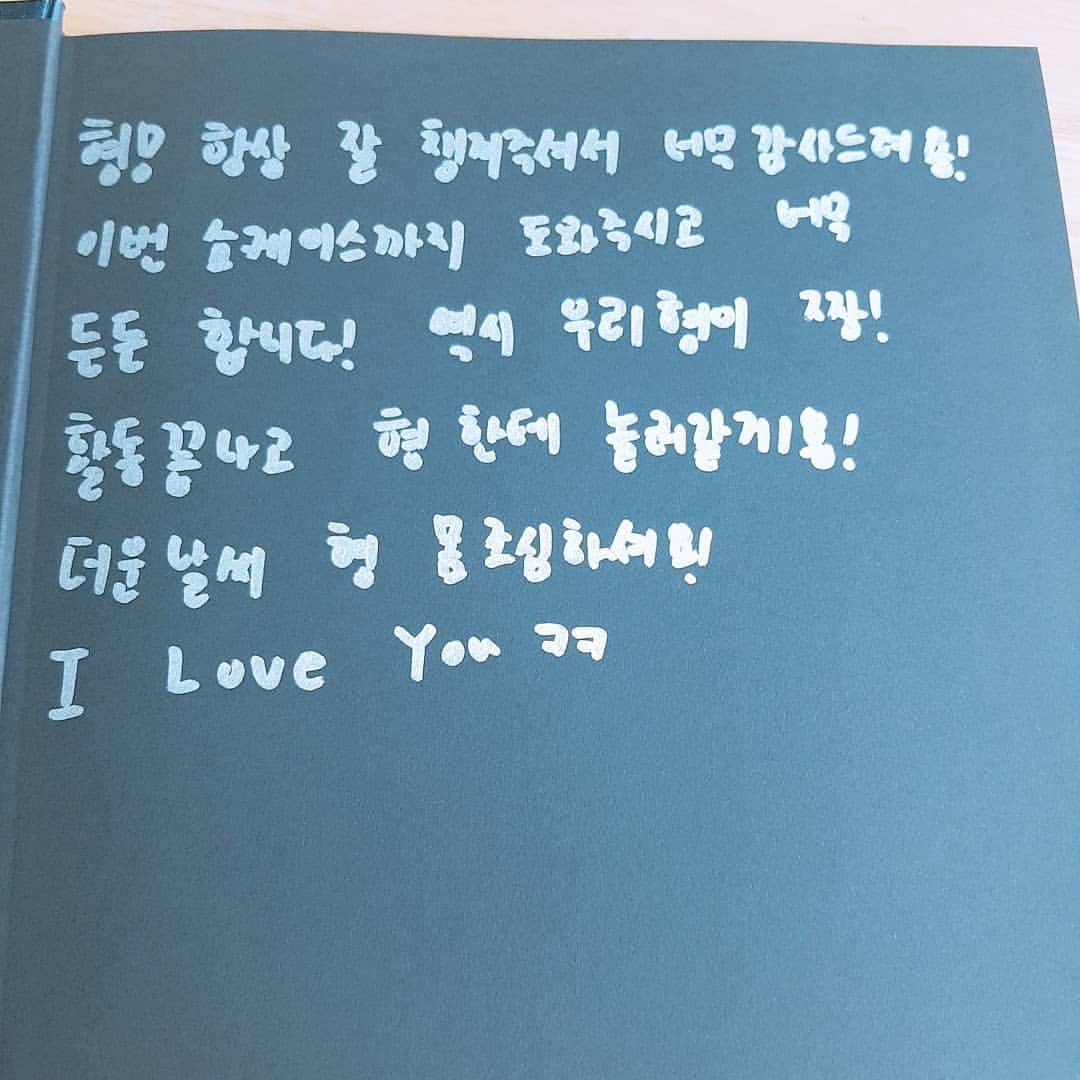 형 항상 잘 챙겨주셔서 너무 감사드려용!
이번 쇼케이스까지 도와주시고 너무
든든 합니다! 역시 우리 형이 짱!
활동 끝나고 형 한테 놀러갈게용!
더운 날씨 형 몸 조심하셔용!
I Love You ㅋㅋ